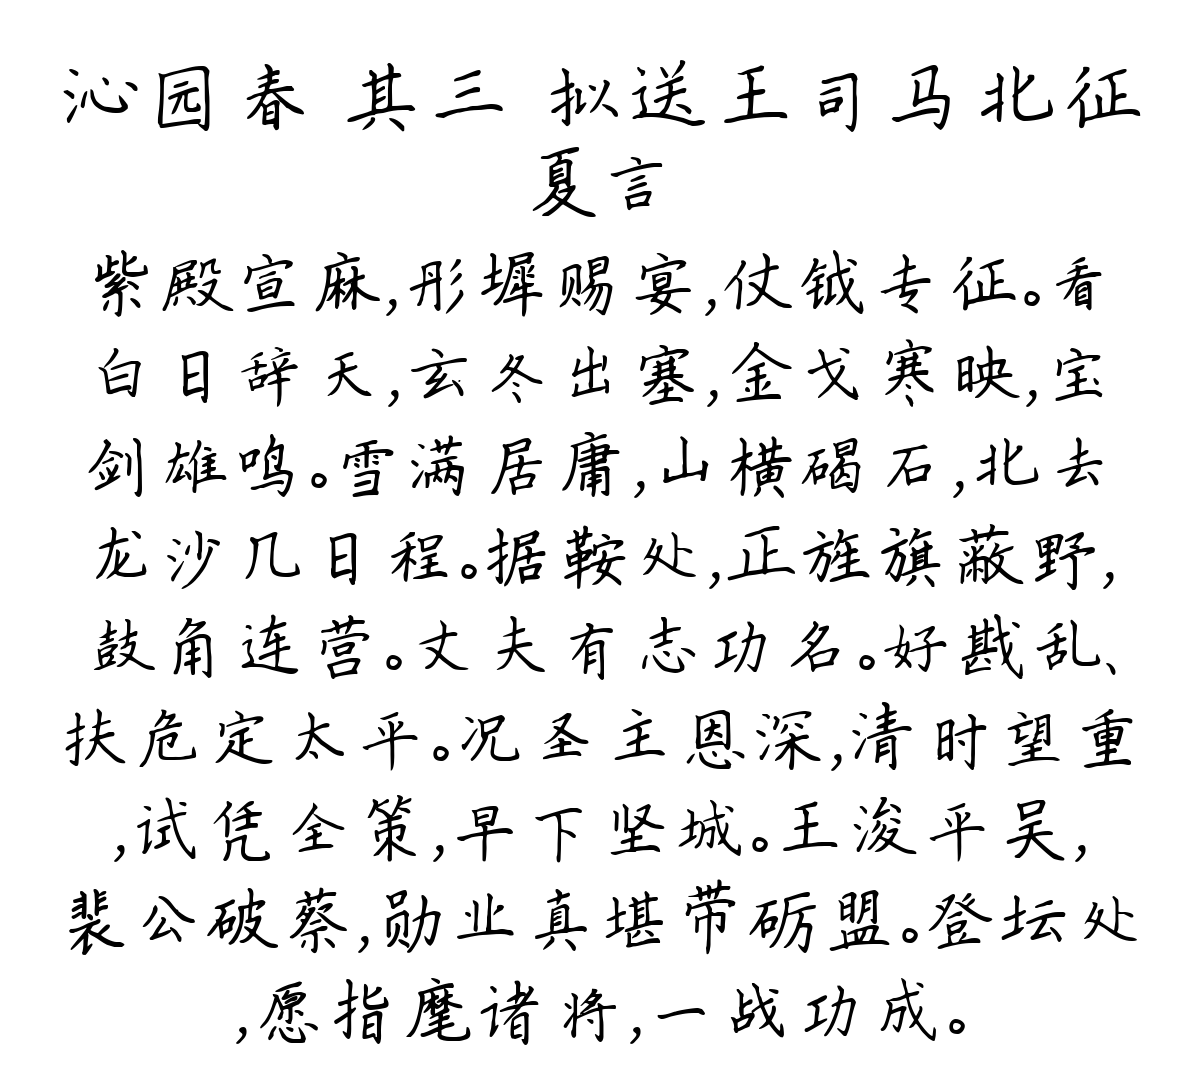 沁园春 其三 拟送王司马北征
夏言
紫殿宣麻,彤墀赐宴,仗钺专征。看
白日辞天,玄冬出塞,金戈寒映,宝
剑雄鸣。雪满居庸,山横碣石,北去
龙沙几日程。据鞍处,正旌旗蔽野,
鼓角连营。丈夫有志功名。好戡乱、
扶危定太平。况圣主恩深,清时望重
,试凭全策,早下坚城。王浚平吴,
裴公破蔡,勋业真堪带砺盟。登坛处
,愿指麾诸将,一战功成。